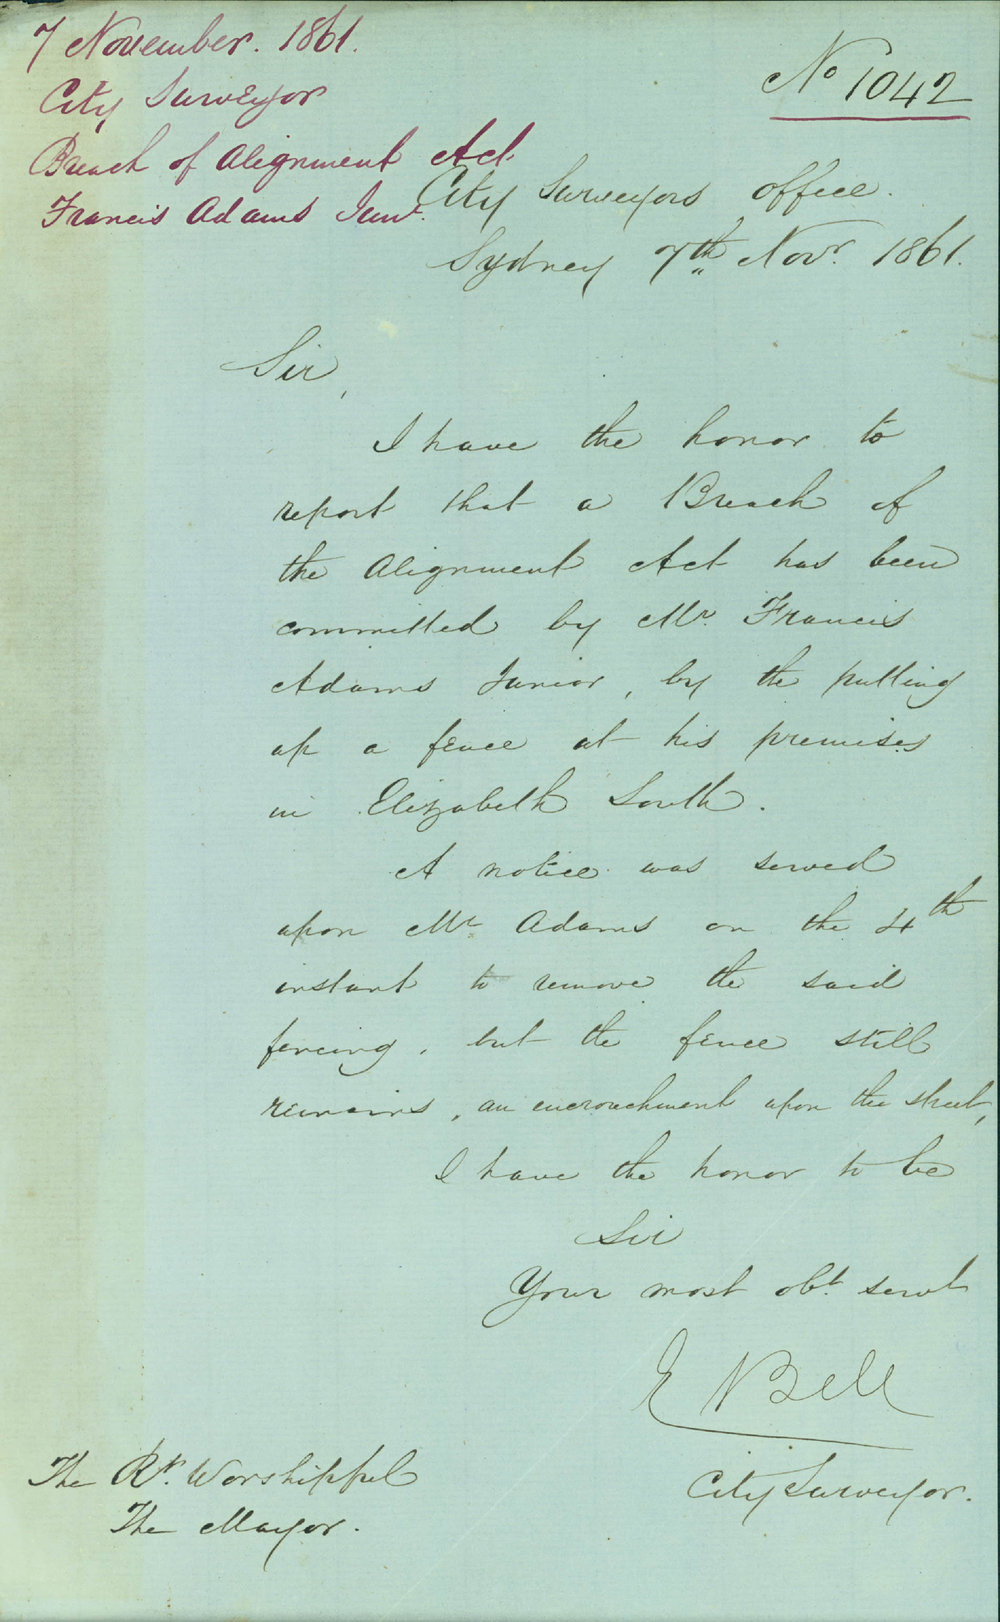 7 November. 1861.
City Surveyor
Breach of Alignment Act.
Francis Adams Junr.
No 1042
City Surveyors office.
Sydney 7th Novr. 1861.
Sir,
I have the honor to
report that a Breach of
the Alignment Act has been
committed by Mr. Francis
Adams Junior, by the putting
up a fence at his premises
in Elizabeth South.
A notice was served
upon Mr Adams on the 4th
instant to remove the said
fencing, but the fence still
remains, an encroachment upon the street,
I have the honor to be
Sir
Your most obt. servt
E Bell
City Surveyor.
The Rt. Worshippful
The Mayor.